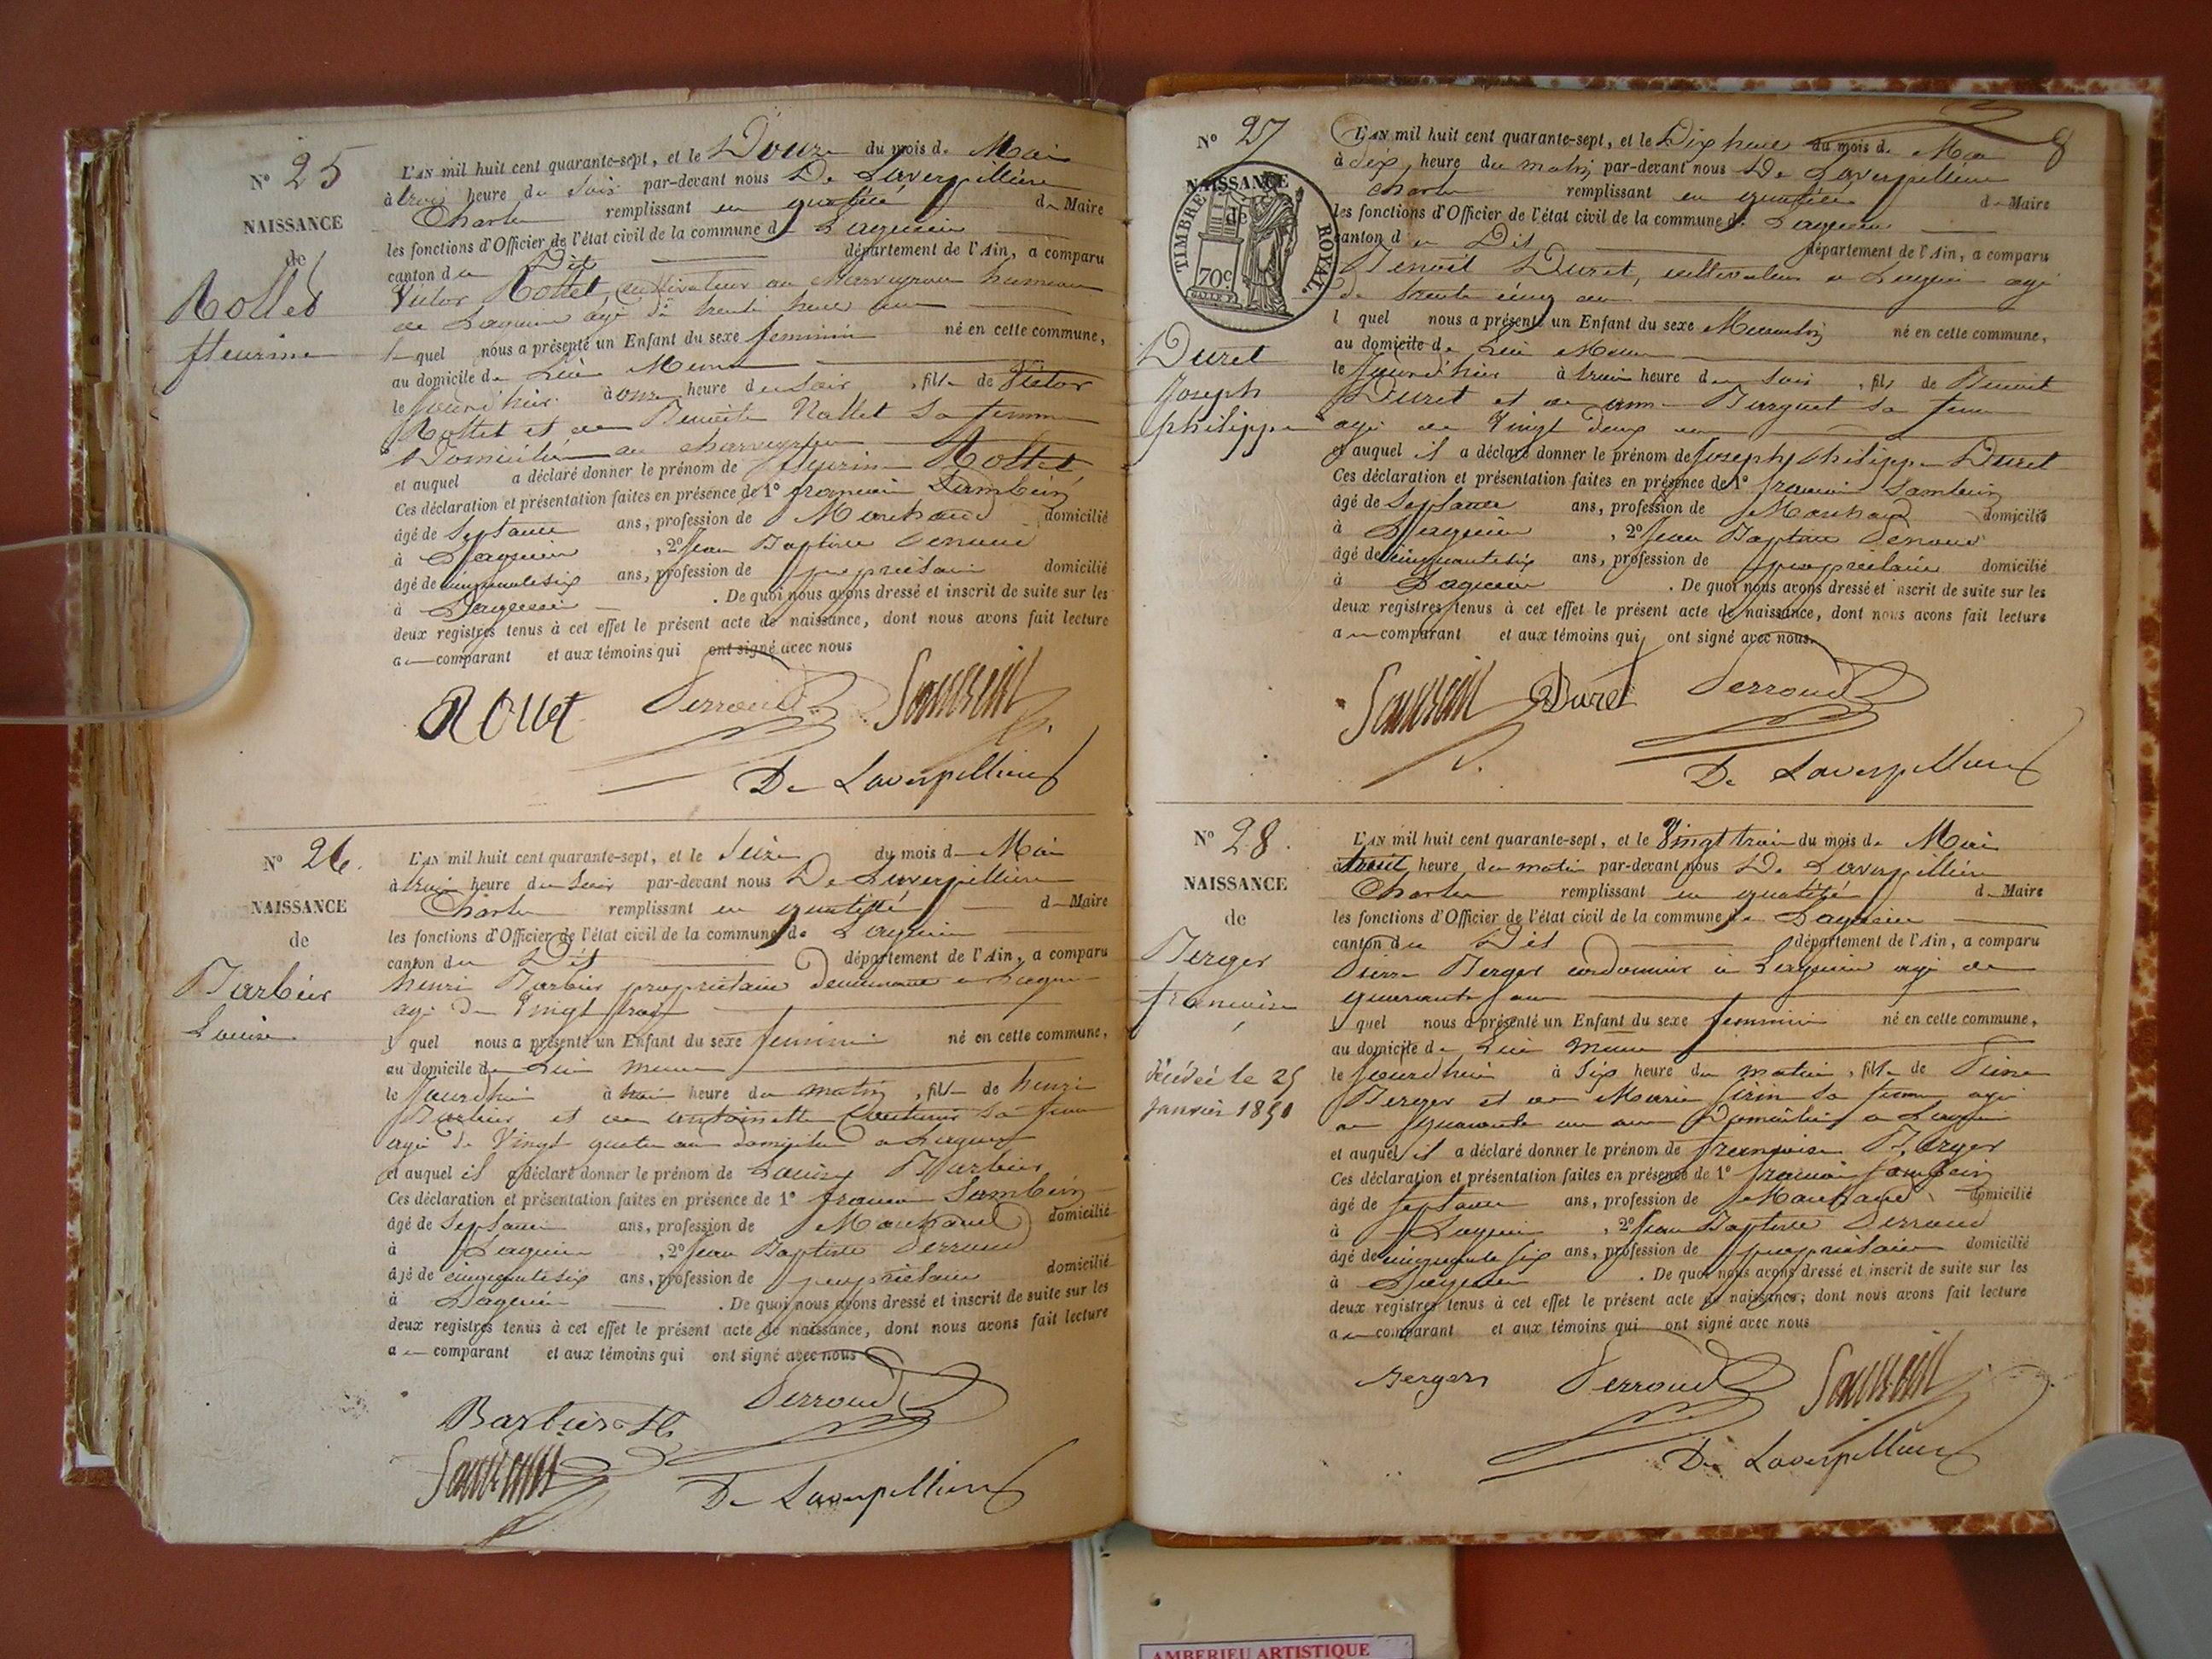 N° 25
NAISSANCE
de
Rollet
fleurine
L'AN mil huit cent quarante-sept, et le Douze du mois de Mai
à trois heure du soir par-devant nous De Laverpillière
Charles remplissant en qualité de Maire
les fonctions d'Officier de l'état civil de la commune de Lagnieu
canton du Dit département de l'Ain, a comparu
Victor Rollet, cultivateur au Charveyron hameau
de Lagnieu agé de trente neuf ans
lequel nous a présenté un Enfant du sexe feminin né en cette commune,
au domicile de Lui Meme
le jourd'hui à onze heure du soir, fille de Victor
Rollet et de Benoite Nallet sa femme
Domiciliés au charveyron
et auquel a déclaré donner le prénom de fleurine Rollet
Ces déclaration et présentation faites en présence de 1° françois Sambuin
âgé de Septante ans, profession de Marchand domicilié
à Lagnieu, 2° Jean Baptiste Perroud
âgé de cinquante six ans, profession de propriétaire domicilié
à Lagnieu. De quoi nous avons dressé et inscrit de suite sur les
deux registres tenus à cet effet le présent acte de naissance, dont nous avons fait lecture
au comparant et aux témoins qui ont signé avec nous
Rollet Perroud
De Laverpillière
N° 26.
NAISSANCE
de
Barbier
Louise
L'AN mil huit cent quarante-sept, et le Seize du mois de Mai
à trois heure du soir par-devant nous De Laverpillière
Charles remplissant en qualité de Maire
les fonctions d'Officier de l'état civil de la commune de Lagnieu
canton du Dit département de l'Ain, a comparu
henri Barbier propriétaire demeurant a Lagnieu
agé de Vingt
lequel nous a présenté un Enfant du sexe feminin né en cette commune,
au domicile de Lui meme
le jourdhui à trois heure du matin, fille de henri
Barbier et de antoinette sa femme
agé de Vingt quatre ans domicilié a Lagnieu
et auquel il a déclaré donner le prénom de Louise Barbier
Ces déclaration et présentation faites en présence de 1° françois Sambuin
âgé de Septante ans, profession de Marchand domicilié
à Lagnieu, 2° Jean Baptiste Perroud
âgé de cinquante six ans, profession de propriétaire domicilié
à Lagnieu. De quoi nous avons dressé et inscrit de suite sur les
deux registres tenus à cet effet le présent acte de naissance, dont nous avons fait lecture
au comparant et aux témoins qui ont signé avec nous
Perroud
Barbier H
De Laverpillière
8
N° 27
NAISSANCE
de
TIMBRE ROYAL
70c
Duret
Joseph
philippe
L'AN mil huit cent quarante-sept, et le Dix neuf du mois de Mai
à dix heure du matin par-devant nous De Laverpillière
Charles remplissant en qualité de Maire
les fonctions d'Officier de l'état civil de la commune de Lagnieu
canton du Dit département de l'Ain, a comparu
Benoit Duret, cultivateur a Lagnieu agé
de trente cinq ans
lequel nous a présenté un Enfant du sexe Masculin né en cette commune,
au domicile de Lui Meme
le jourd'hui à trois heure du soir, fils de Benoit
Duret et de sa femme
agé de Vingt deux ans
et auquel il a déclaré donner le prénom de Joseph philippe Duret
Ces déclaration et présentation faites en présence de 1° françois Sambuin
âgé de Septante ans, profession de Marchand domicilié
à Lagnieu, 2° Jean Baptiste Perroud
âgé de cinquante six ans, profession de propriétaire domicilié
à Lagnieu. De quoi nous avons dressé et inscrit de suite sur les
deux registres tenus à cet effet le présent acte de naissance, dont nous avons fait lecture
au comparant et aux témoins qui ont signé avec nous.
Duret Perroud
De Laverpillière
N° 28.
NAISSANCE
de
Berger
françoise
décédée le 25
janvier 1850
L'AN mil huit cent quarante-sept, et le Vingt trois du mois de Mai
à heure du matin par-devant nous De Laverpillière
Charles remplissant en qualité de Maire
les fonctions d'Officier de l'état civil de la commune de Lagnieu
canton du Dit département de l'Ain, a comparu
Pierre Berger cordonnier a Lagnieu agé de
quarante ans
lequel nous a présenté un Enfant du sexe feminin né en cette commune,
au domicile de Lui meme
le jourdhui à Six heure du matin, fille de Pierre
Berger et de Marie sa femme agé
de quarante un ans Domiciliés a Lagnieu
et auquel il a déclaré donner le prénom de françoise Berger
Ces déclaration et présentation faites en présence de 1° françois Sambuin
âgé de Septante ans, profession de Marchand domicilié
à Lagnieu, 2° Jean Baptiste Perroud
âgé de cinquante six ans, profession de propriétaire domicilié
à Lagnieu. De quoi nous avons dressé et inscrit de suite sur les
deux registres tenus à cet effet le présent acte de naissance, dont nous avons fait lecture
au comparant et aux témoins qui ont signé avec nous
Berger Perroud
De Laverpillière
AMBERIEU ARTISTIQUE